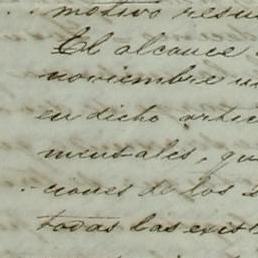 motivo resu
El alcance
noviembre u
en dicho artic
mensales, qu
ciones de los
todas las exist